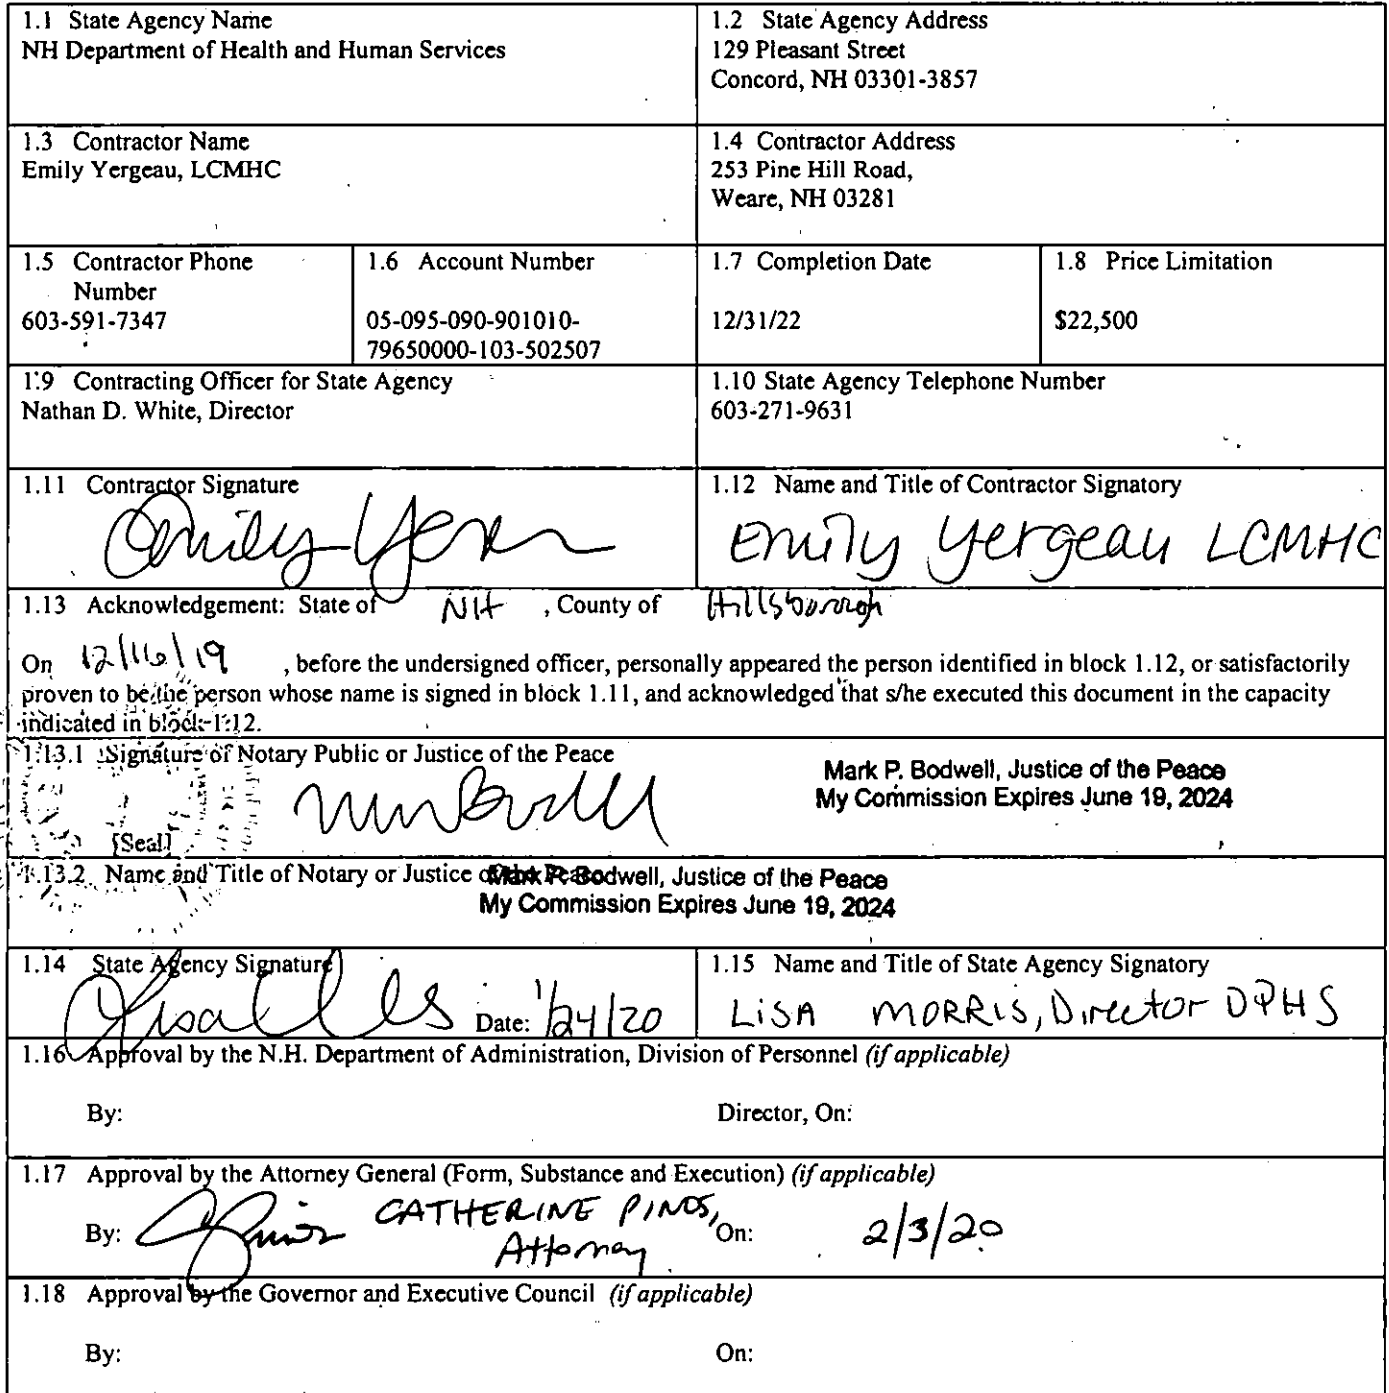 1.1 State Agency Name
NH Department of Health and Human Services
1.2 State Agency Address
129 Pleasant Street
Concord, NH 03301-3857
1.3 Contractor Name
Emily Yergeau, LCMHC
1.4 Contractor Address
253 Pine Hill Road,
Weare, NH 03281
1.5 Contractor Phone
Number
603-591-7347
1.6 Account Number
05-095-090-901010-
79650000-103-502507
1.7 Completion Date
12/31/22
1.8 Price Limitation
$22,500
1.9 Contracting Officer for State Agency
Nathan D. White, Director
1.10 State Agency Telephone Number
603-271-9631
1.11 Contractor Signature
Emily Yer
1.12 Name and Title of Contractor Signatory
Emily Yergeau LCMHC
1.13 Acknowledgement: State of NH , County of Hillsborough
On 12/16/19 , before the undersigned officer, personally appeared the person identified in block 1.12, or satisfactorily
proven to be the person whose name is signed in block 1.11, and acknowledged that s/he executed this document in the capacity
indicated in block 1.12.
1.13.1 Signature of Notary Public or Justice of the Peace
Mark P. Bodwell, Justice of the Peace
My Commission Expires June 19, 2024
[Seal]
1.13.2 Name and Title of Notary or Justice of the Peace
Mark P. Bodwell, Justice of the Peace
My Commission Expires June 19, 2024
1.14 State Agency Signature
Date: 1/24/20
1.15 Name and Title of State Agency Signatory
LISA MORRIS, Director DPHS
1.16 Approval by the N.H. Department of Administration, Division of Personnel (if applicable)
By: Director, On:
1.17 Approval by the Attorney General (Form, Substance and Execution) (if applicable)
By: CATHERINE PINOS, On: 2/3/20
Attorney
1.18 Approval by the Governor and Executive Council (if applicable)
By: On: